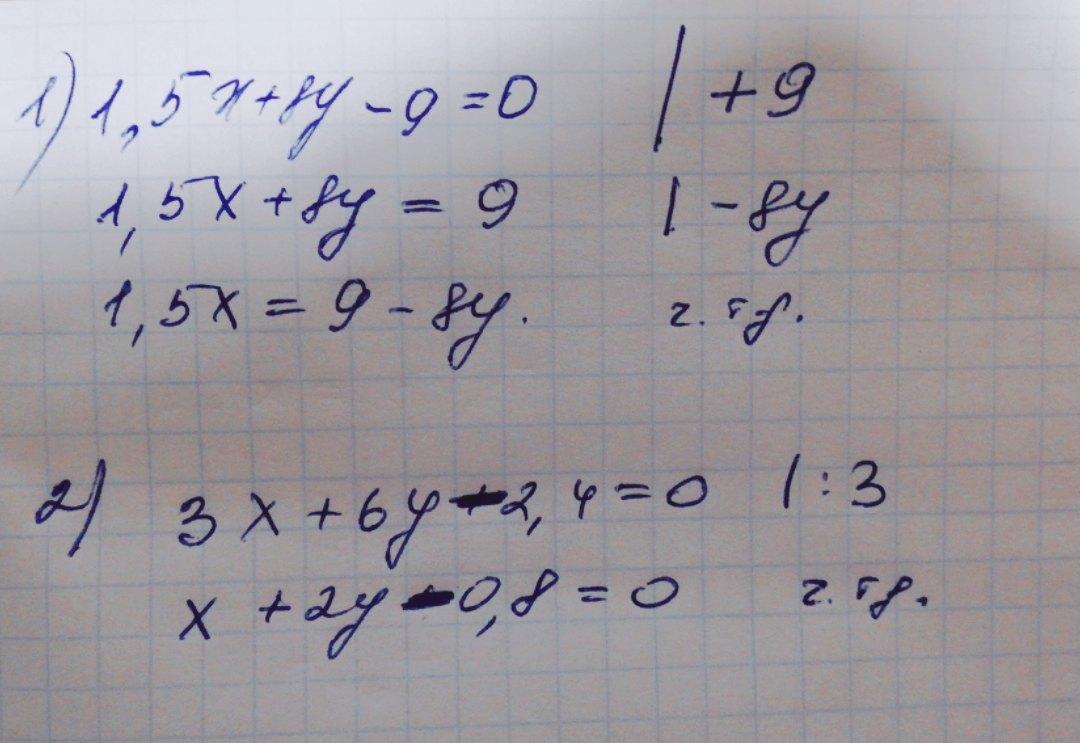 1) 1,5x+8y-9=0 | +9
1,5x+8y = 9 | -8y
1,5x = 9 - 8y. г. тд.
2) 3x+6y-2,4=0 | :3
x +2y-0,8=0 г. тд.